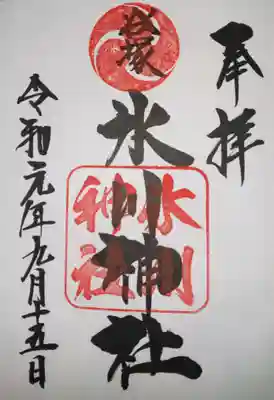 奉拝
笹塚
氷川神社
氷川
神社
令和元年九月十五日